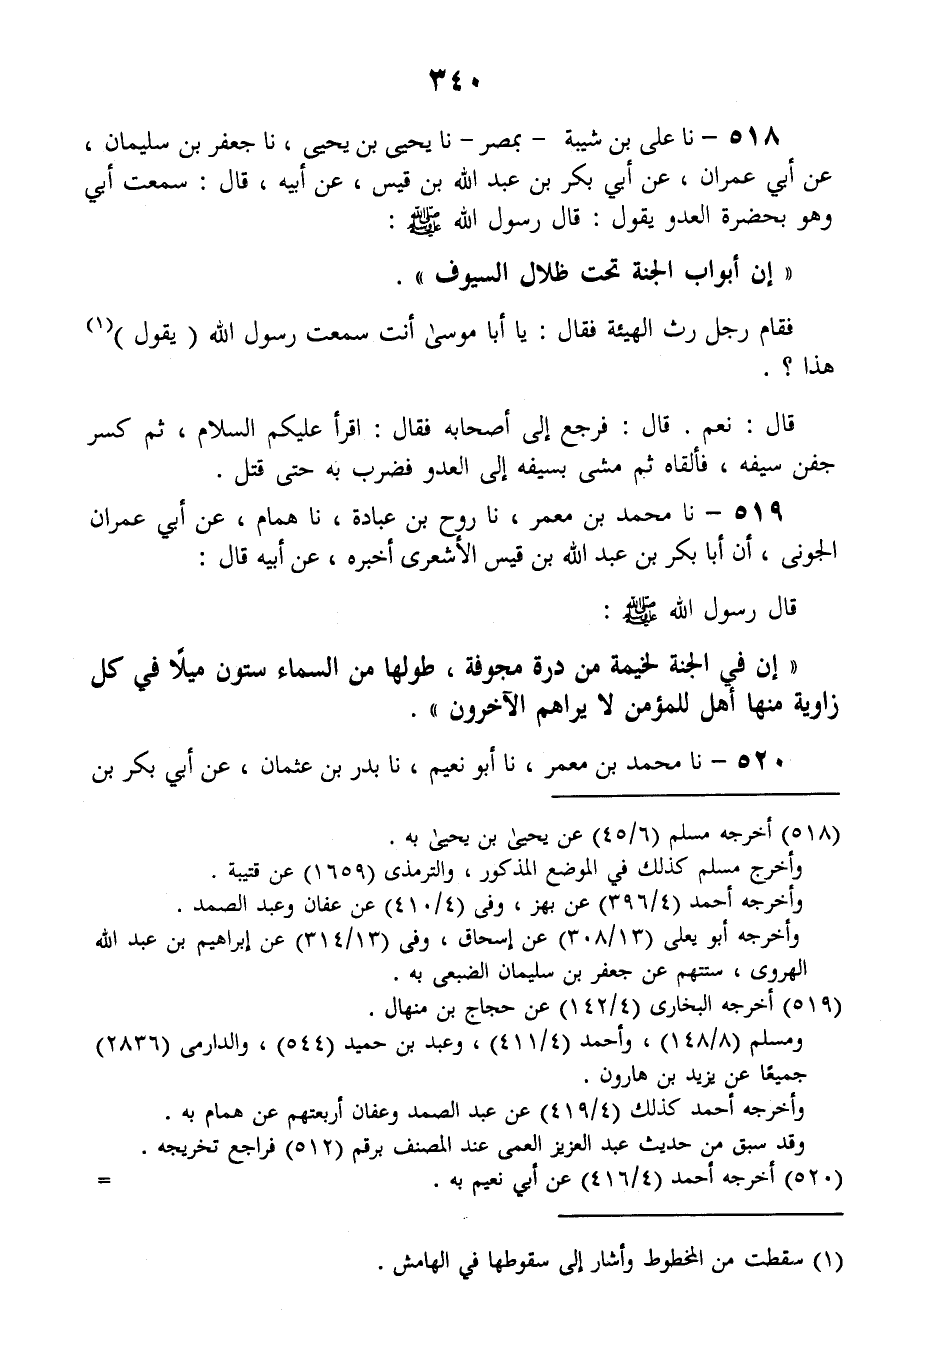 ٣٤٠
٥١٨ – نا على بن شيبة – بمصر – نا يحيى بن يحيى ، نا جعفر بن سليمان ،
عن أبي عمران ، عن أبي بكر بن عبد الله بن قيس ، عن أبيه ، قال : سمعت أبي
وهو بحضرة العدو يقول : قال رسول الله ﷺ :
« إن أبواب الجنة تحت ظلال السيوف » .
فقام رجل رث الهيئة فقال : يا أبا موسىٰ أنت سمعت رسول الله ( يقول )(١)
هذا ؟ .
قال : نعم . قال : فرجع إلى أصحابه فقال : اقرأ عليكم السلام ، ثم كسر
جفن سيفه ، فألقاه ثم مشى بسيفه إلى العدو فضرب به حتى قتل .
٥١٩ – نا محمد بن معمر ، نا روح بن عبادة ، نا همام ، عن أبي عمران
الجونى ، أن أبا بكر بن عبد الله بن قيس الأشعرى أخبره ، عن أبيه قال :
قال رسول الله ﷺ :
« إن في الجنة لخيمة من درة مجوفة ، طولها من السماء ستون ميلًا في كل
زاوية منها أهل للمؤمن لا يراهم الآخرون » .
٥٢٠ – نا محمد بن معمر ، نا أبو نعيم ، نا بدر بن عثمان ، عن أبي بكر بن
(٥١٨) أخرجه مسلم (٤٥/٦) عن يحيىٰ بن يحيىٰ به .
وأخرج مسلم كذلك في الموضع المذكور ، والترمذى (١٦٥٩) عن قتيبة .
وأخرجه أحمد (٣٩٦/٤) عن بهز ، وفى (٤١٠/٤) عن عفان وعبد الصمد .
وأخرجه أبو يعلى (٣٠٨/١٣) عن إسحاق ، وفى (٣١٤/١٣) عن إبراهيم بن عبد الله
الهروى ، ستتهم عن جعفر بن سليمان الضبعى به .
(٥١٩) أخرجه البخارى (١٤٢/٤) عن حجاج بن منهال .
ومسلم (١٤٨/٨) ، وأحمد (٤١١/٤) ، وعبد بن حميد (٥٤٤) ، والدارمى (٢٨٣٦)
جميعًا عن يزيد بن هارون .
وأخرجه أحمد كذلك (٤١٩/٤) عن عبد الصمد وعفان أربعتهم عن همام به .
وقد سبق من حديث عبد العزيز العمى عند المصنف برقم (٥١٢) فراجع تخريجه .
(٥٢٠) أخرجه أحمد (٤١٦/٤) عن أبي نعيم به . =
(١) سقطت من المخطوط وأشار إلى سقوطها في الهامش .